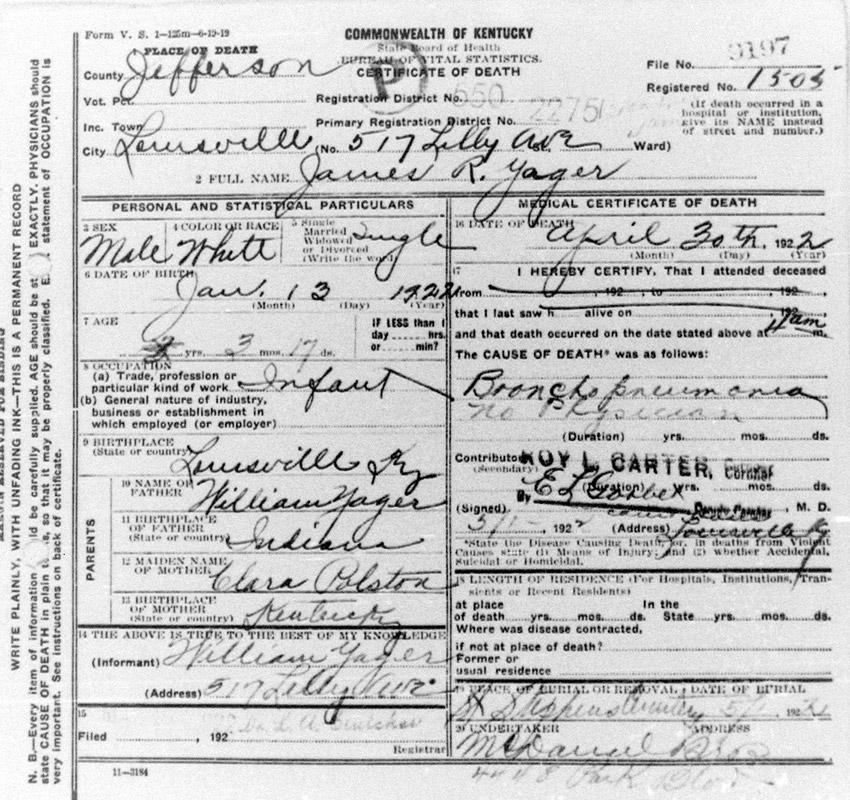 Form V. S. 1—125m—6-19-19
COMMONWEALTH OF KENTUCKY
State Board of Health
BUREAU OF VITAL STATISTICS.
CERTIFICATE OF DEATH
1 PLACE OF DEATH
County Jefferson
Vot. Pct.
Inc. Town
City Louisville (No. 517 Lilly Ave St. Ward)
Registration District No. 550
Primary Registration District No. 2275
File No. 9197
Registered No. 1505
(If death occurred in a hospital or institution, give its NAME instead of street and number.)
2 FULL NAME James R. Yager
PERSONAL AND STATISTICAL PARTICULARS
3 SEX Male
4 COLOR OR RACE White
5 Single Married Widowed or Divorced (Write the word) Single
6 DATE OF BIRTH
Jan. 13 1922
(Month) (Day) (Year)
7 AGE
yrs. 3 mos. 17 ds.
IF LESS than 1 day hrs. or min?
8 OCCUPATION
(a) Trade, profession or particular kind of work Infant
(b) General nature of industry, business or establishment in which employed (or employer)
9 BIRTHPLACE
(State or country) Louisville Ky
PARENTS
10 NAME OF FATHER William Yager
11 BIRTHPLACE OF FATHER (State or country) Indiana
12 MAIDEN NAME OF MOTHER Clara Polston
13 BIRTHPLACE OF MOTHER (State or country) Kentucky
14 THE ABOVE IS TRUE TO THE BEST OF MY KNOWLEDGE
(Informant) William Yager
(Address) 517 Lilly Ave
15
Filed 192
Registrar
11—3184
MEDICAL CERTIFICATE OF DEATH
16 DATE OF DEATH
April 30th. 1922
(Month) (Day) (Year)
17 I HEREBY CERTIFY, That I attended deceased
from , 192 , to , 192
that I last saw h alive on , 192
and that death occurred on the date stated above at 11am m.
The CAUSE OF DEATH* was as follows:
Bronchopneumonia
no Physician
(Duration) yrs. mos. ds.
Contributory
(Secondary)
ROY L. CARTER, Coroner
(Duration) yrs. mos. ds.
By
(Signed) , M. D.
5/1 1922 (Address) Louisville Ky
*State the Disease Causing Death, or, in deaths from Violent Causes state (1) Means of Injury; and (2) whether Accidental, Suicidal or Homicidal.
18 LENGTH OF RESIDENCE (For Hospitals, Institutions, Transients or Recent Residents)
at place of death yrs. mos. ds. In the State yrs. mos. ds.
Where was disease contracted,
if not at place of death?
Former or usual residence
19 PLACE OF BURIAL OR REMOVAL DATE OF BURIAL
St Stephens 5/1 1922
20 UNDERTAKER ADDRESS
McDaniel Bros
Park Blvd.
MARGIN RESERVED FOR BINDING
WRITE PLAINLY, WITH UNFADING INK—THIS IS A PERMANENT RECORD
N. B.—Every item of information should be carefully supplied. AGE should be stated EXACTLY. PHYSICIANS should
state CAUSE OF DEATH in plain terms, so that it may be properly classified. Exact statement of OCCUPATION is
very important. See instructions on back of certificate.